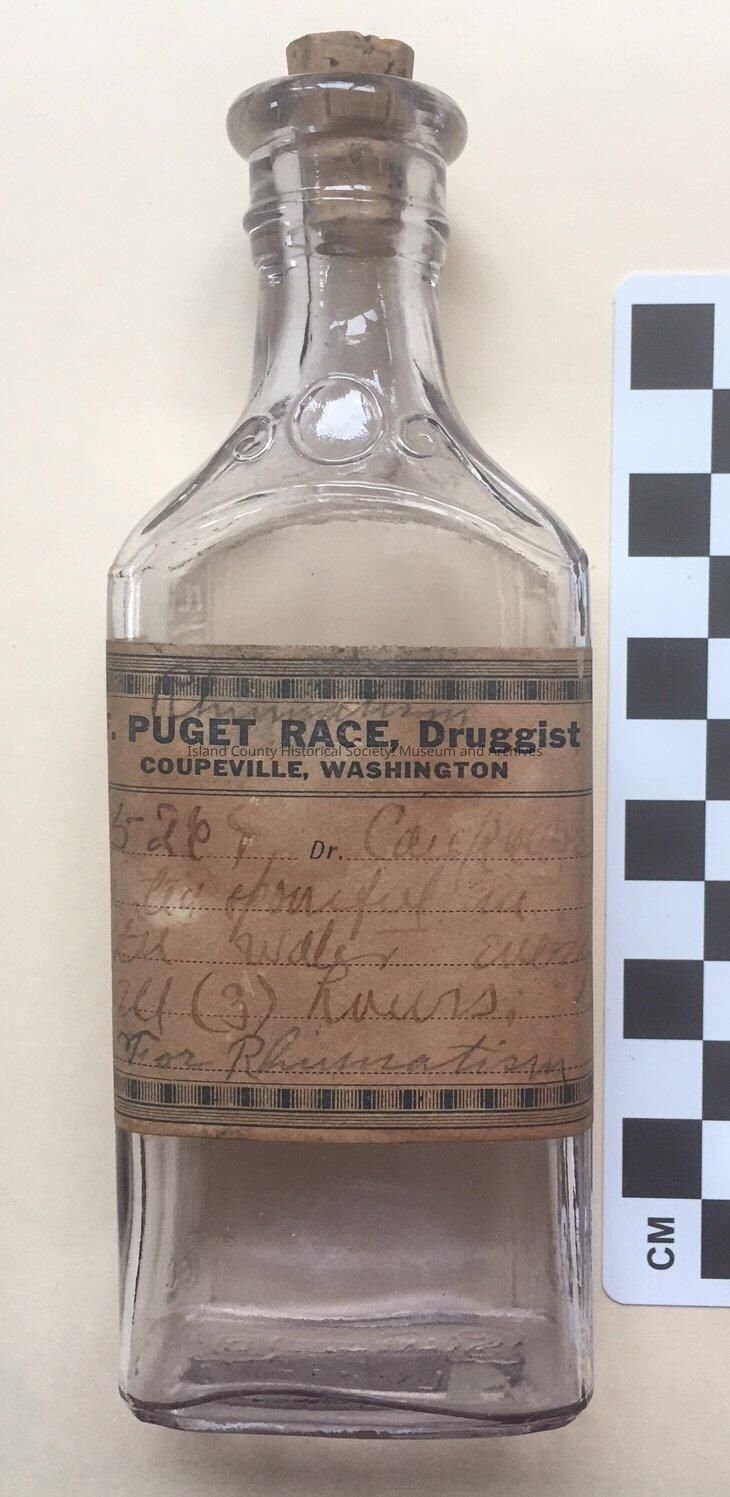 Rhumatism
. PUGET RACE, Druggist
Island County Historical Society, Museum and Archives
COUPEVILLE, WASHINGTON
5-26 Dr.
tea spoonful in
water every
(3) hours.
For Rhumatism
CM